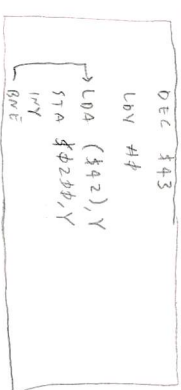 DEC $43
LDY #∅
LDA ($42),Y
STA $∅2∅∅,Y
INY
BNE